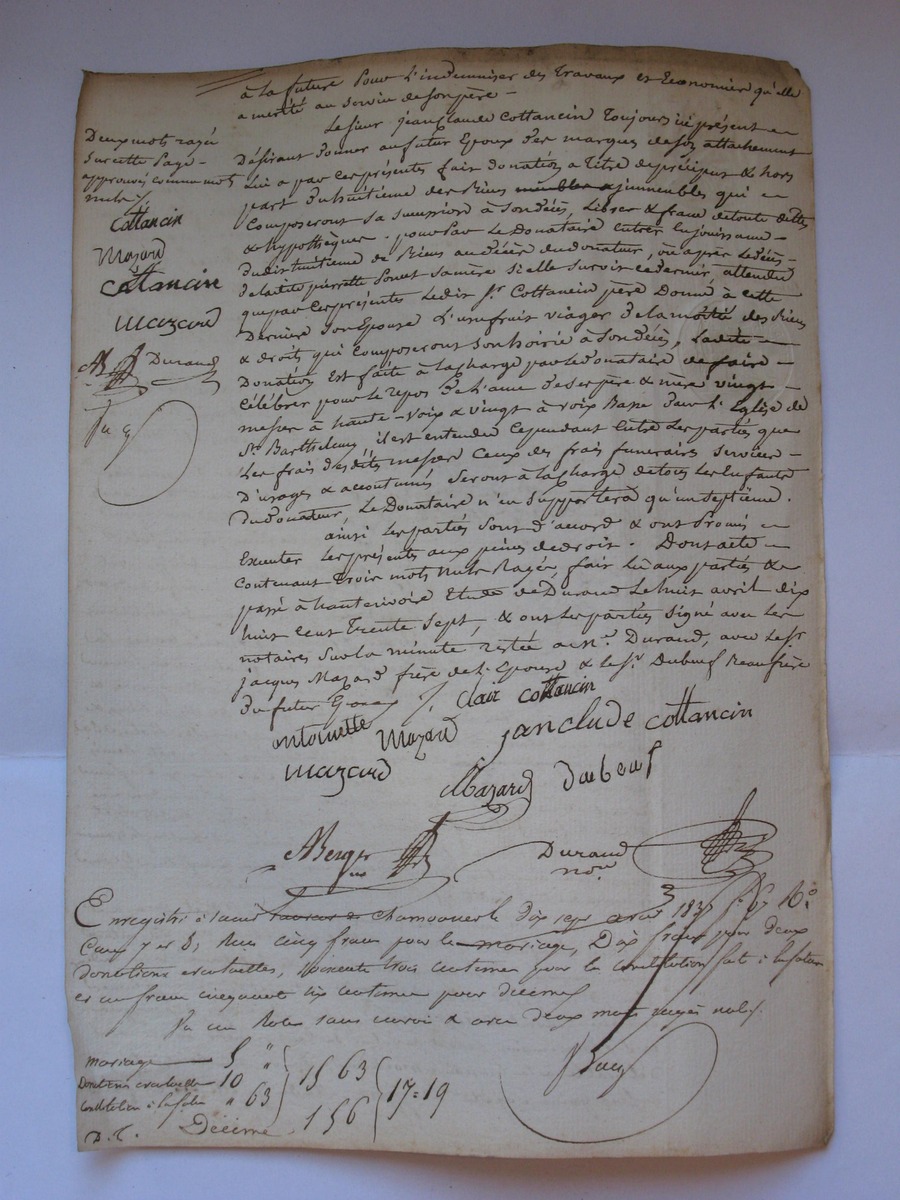 à la future pour l'indemniser des travaux et Economies qu'elle
a mérité au service de son père -
Le sieur jean Claude Cottancin toujours ici présent -
Désirant donner au futur Epoux des marques de son attachement
lui a par ces présentes fait donation à titre de préciput & hors
part d'un huitième des Biens meubles & immeubles qui -
composeront sa succession à son décès, libre & franc de toute dettes
& hypothèques. pour par le Donataire entrer en jouissance -
du dit huitième de Biens au décès du donateur, ou après le décès -
de la dite pierrette Ponet sa mère si elle survit ce dernier, attendu
que par ces présentes le dit Sr. Cottancin père Donne à cette
Dernière son Epouse l'usufruit viager de la moitié des Biens
& droits qui composeront son hoirie à son décès, la dite -
Donation est faite à la charge par le donataire de faire -
célébrer pour le repos de l'ame de ses père & mère vingt -
messes à haute-voix & vingt à voix Basse dans l'Eglise de
St. Barthelemy il est entendu cependant entre les parties que
les frais des dites messes ceux des frais funeraires services -
D'usages & accoutumés seront à la charge de tous les enfants
du donateur, le Donataire n'en supportera qu'un septième.
ainsi les parties sont d'accord & ont promis -
Executer les présentes aux peines de droit. Dont acte -
contenant trois mots nuls Rayés, fait lu aux parties &
passé à hauterivoire Etude de Durand le huit avril dix
huit cent trente sept, & ont les parties signé avec les
notaires sur la minute restée à Me. Durand, avec le Sr
jacques Mazard frère de l'Epouse & le Sr. Dubeuf Beaufrère
du futur Epoux
Deux mots rayés
sur cette page -
approuvés comme mots
nuls
Cottancin
Mazard
Cottancin
Mazard
AB
Durand
Clair Cottancin
antoinette
Mazard
janclude cottancin
mazard
Mazard
dubeuf
ABerger
Durand
nore
Enregistré à chamousset le dix sept avril 1837 fo. 67 Ro.
Cases 7 et 8, Reçu cinq francs pour le mariage, Dix francs pour deux
donations éventuelles, soixante trois centimes pour la constitution fait à la future
et un franc cinquante six centimes pour décime
Vu un Role sans renvoi & avec deux mots rayés nuls
mariage 5 "
Donations éventuelles 10 "
Constitution à la future " 63
15 63
D. C. Décime 1 56
17=19